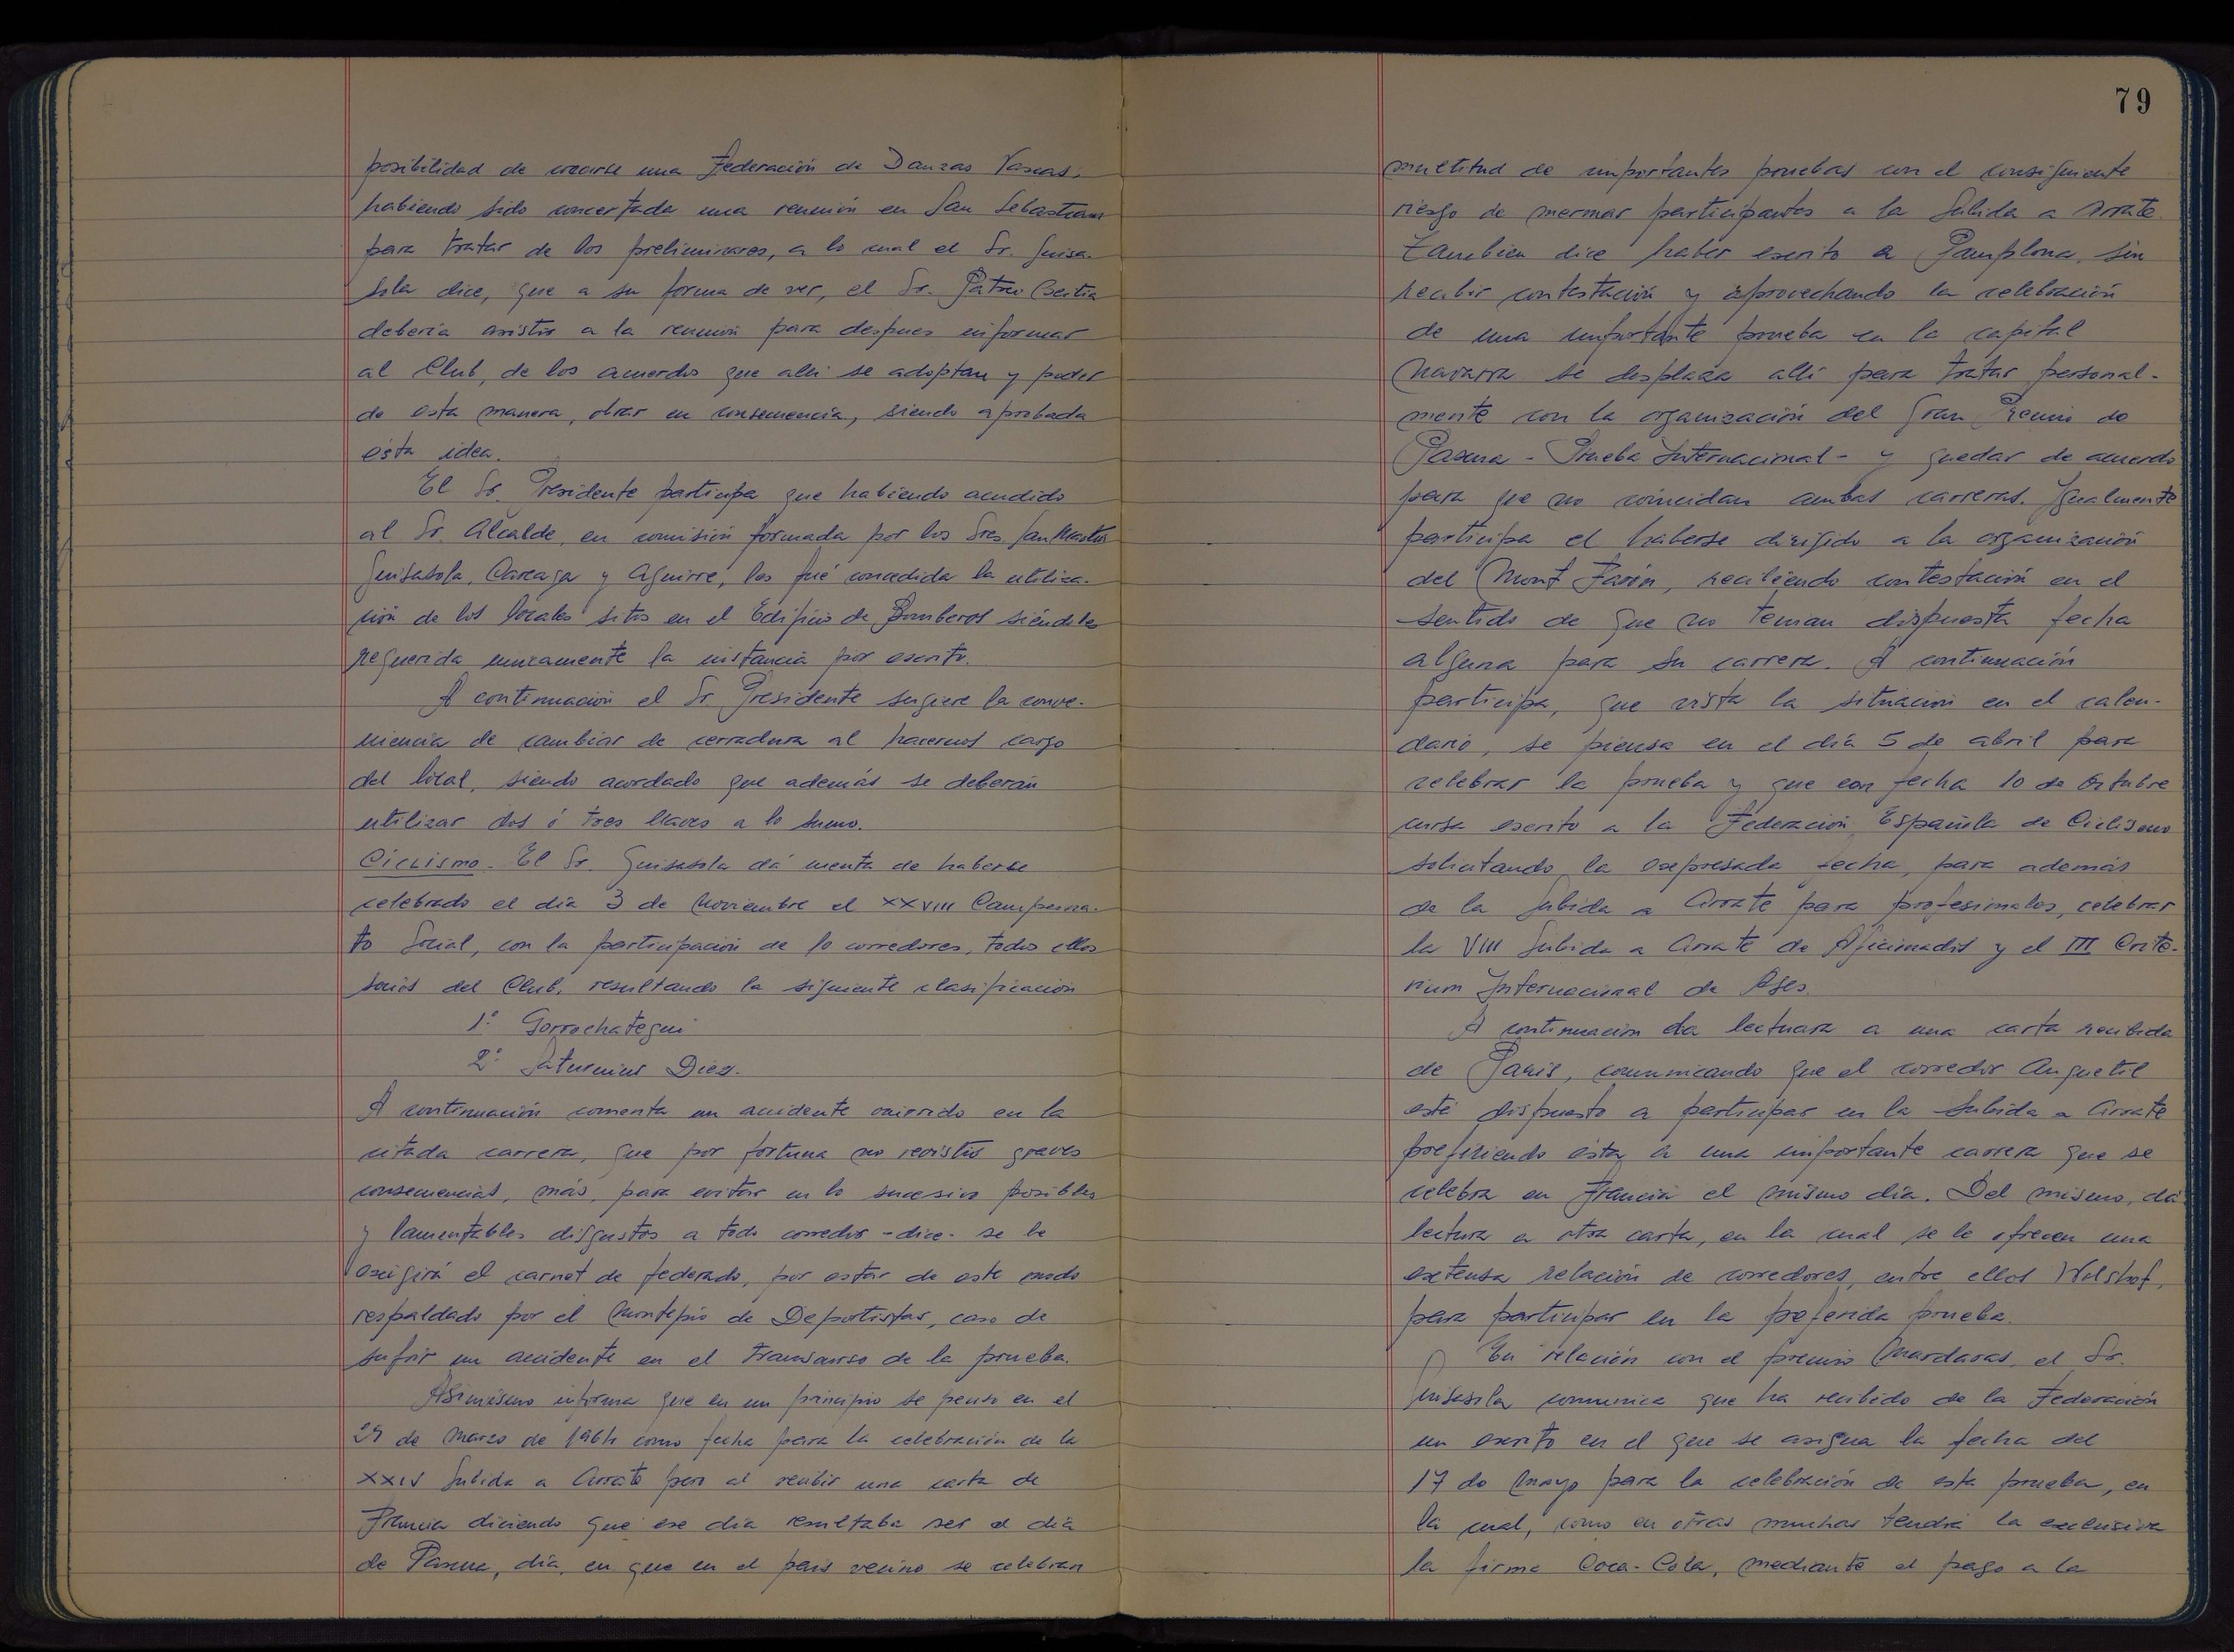 posibilidad de crearse una Federación de Danzas Vascas,
habiendo sido concertada una reunión en San Sebastian
para tratar de los preliminares, a lo cual el Sr. Guisa-
sola dice, que a su forma de ver, el Sr. Patxo
debería asistir a la reunión para despues informar
al Club, de los acuerdos que allí se adoptan y poder
de esta manera, obrar en consecuencia, siendo aprobada
ésta idea.
El Sr. Presidente participa que habiendo acudido
al Sr. Alcalde, en comisión formada por los Sres. San Martin
Guisasola, Careaga y Aguirre, les fué concedida la utiliza-
ción de los locales sitos en el Edificio de Bomberos siéndoles
requerida unicamente la instancia por escrito.
A continuación el Sr. Presidente sugiere la conve-
niencia de cambiar de cerradura al hacernos cargo
del local, siendo acordado que además se deberán
utilizar dos ó tres llaves a lo sumo.
Ciclismo - El Sr. Guisasola dá cuenta de haberse
celebrado el día 3 de Noviembre el XXVIII Campeona-
to Social, con la participación de 10 corredores, todos ellos
socios del Club, resultando la siguiente clasificación
1º Gorrochategui
2º Saturnino Diez.
A continuación comenta un accidente ocurrido en la
citada carrera, que por fortuna no revistió graves
consecuencias, más, para evitar en lo sucesivo posibles
y lamentables disgustos a todo corredor - dice - se le
exigirá el carnet de federado, por estar de este modo
respaldado por el Montepio de Deportistas, caso de
sufrir un accidente en el transcurso de la prueba.
Asimismo informa que en un principio se penso en el
29 de Marzo de 1964 como fecha para la celebración de la
XXIV Subida a Arrate pero al recibir una carta de
Francia diciendo que ese día resultaba ser el día
de Pascua, día, en que en el pais vecino se celebran
79
multitud de importantes pruebas con el consiguiente
riesgo de mermar participantes a la Subida a Arrate.
Tambien dice haber escrito a Pamplona, sin
recibir contestación y aprovechando la celebración
de una importante prueba en la capital
Navarra se desplaza allí para tratar personal-
mente con la organización del Gran Premio de
Pascua - Prueba Internacional - y quedar de acuerdo
para que no coincidan ambas carreras. Igualmente
participa el haberse dirigido a la organización
del Mont Farón, recibiendo contestación en el
sentido de que no tenian dispuesta fecha
alguna para su carrera. A continuación
participa, que vista la situación en el calen-
dario, se piensa en el día 5 de abril para
celebrar la prueba y que con fecha 10 de Octubre
cursa escrito a la Federación Española de Ciclismo
solicitando la expresada fecha, para además
de la Subida a Arrate para profesionales, celebrar
la VIII Subida a Arrate de Aficionados y el III Crite-
rium Internacional de Ases.
A continuación da lectuara a una carta recibida
de Paris, comunicando que el corredor Anquetil
esté dispuesto a participar en la Subida a Arrate
prefiriendo ésta a una importante carrera que se
celebra en Francia el mismo día. Del mismo, dá
lectura a otra carta, en la cual se le ofrecen una
extensa relación de corredores, entre ellos Wolshof,
para participar en la preferida prueba.
En relación con el premio Mardaras, el Sr.
Guisasola comunica que ha recibido de la Federación
un escrito en el que se asigna la fecha del
17 de Mayo para la celebración de esta prueba, en
la cual, como en otras muchas tendrá la exclusiva
la firma Coca-Cola, mediante el pago a la